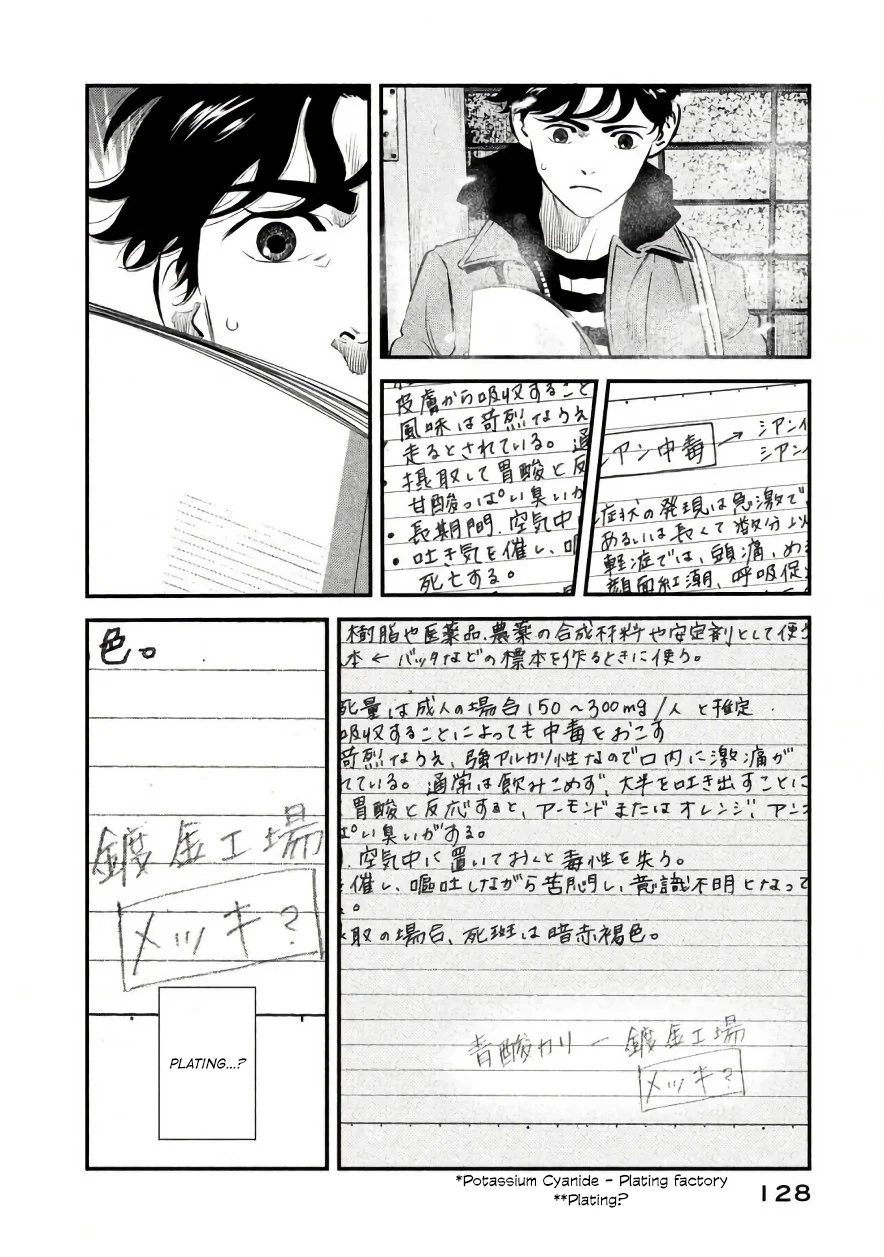 皮膚から吸収すること
風味は苛烈なうえ
走るとされている。通
・摂取して胃酸と反
甘酸っぱい臭いが
・長期間、空気中
・吐き気を催し、嘔
死亡する。
シアン中毒
→ シアン
シアン
症状の発現は急激で
あるいは長くて数分以
軽症では、頭痛、め
顔面紅潮、呼吸促
樹脂や医薬品、農薬の合成材料や安定剤として使う
本 ← バッタなどの標本を作るときに使う。
死量は成人の場合150~300mg/人と推定
吸収することによっても中毒をおこす
苛烈なうえ、強アルカリ性なので口内に激痛が
れている。通常は飲みこめず、大半を吐き出すことに
胃酸と反応すると、アーモンドまたはオレンジ、アン
ぱい臭いがある。
、空気中に置いておくと毒性を失う。
催し、嘔吐しながら苦悶し、意識不明となって
。
取の場合、死斑は暗赤褐色。
青酸カリ ー 鍍金工場
メッキ?
色。
鍍金工場
メッキ?
PLATING...?
*Potassium Cyanide - Plating factory
**Plating?
128